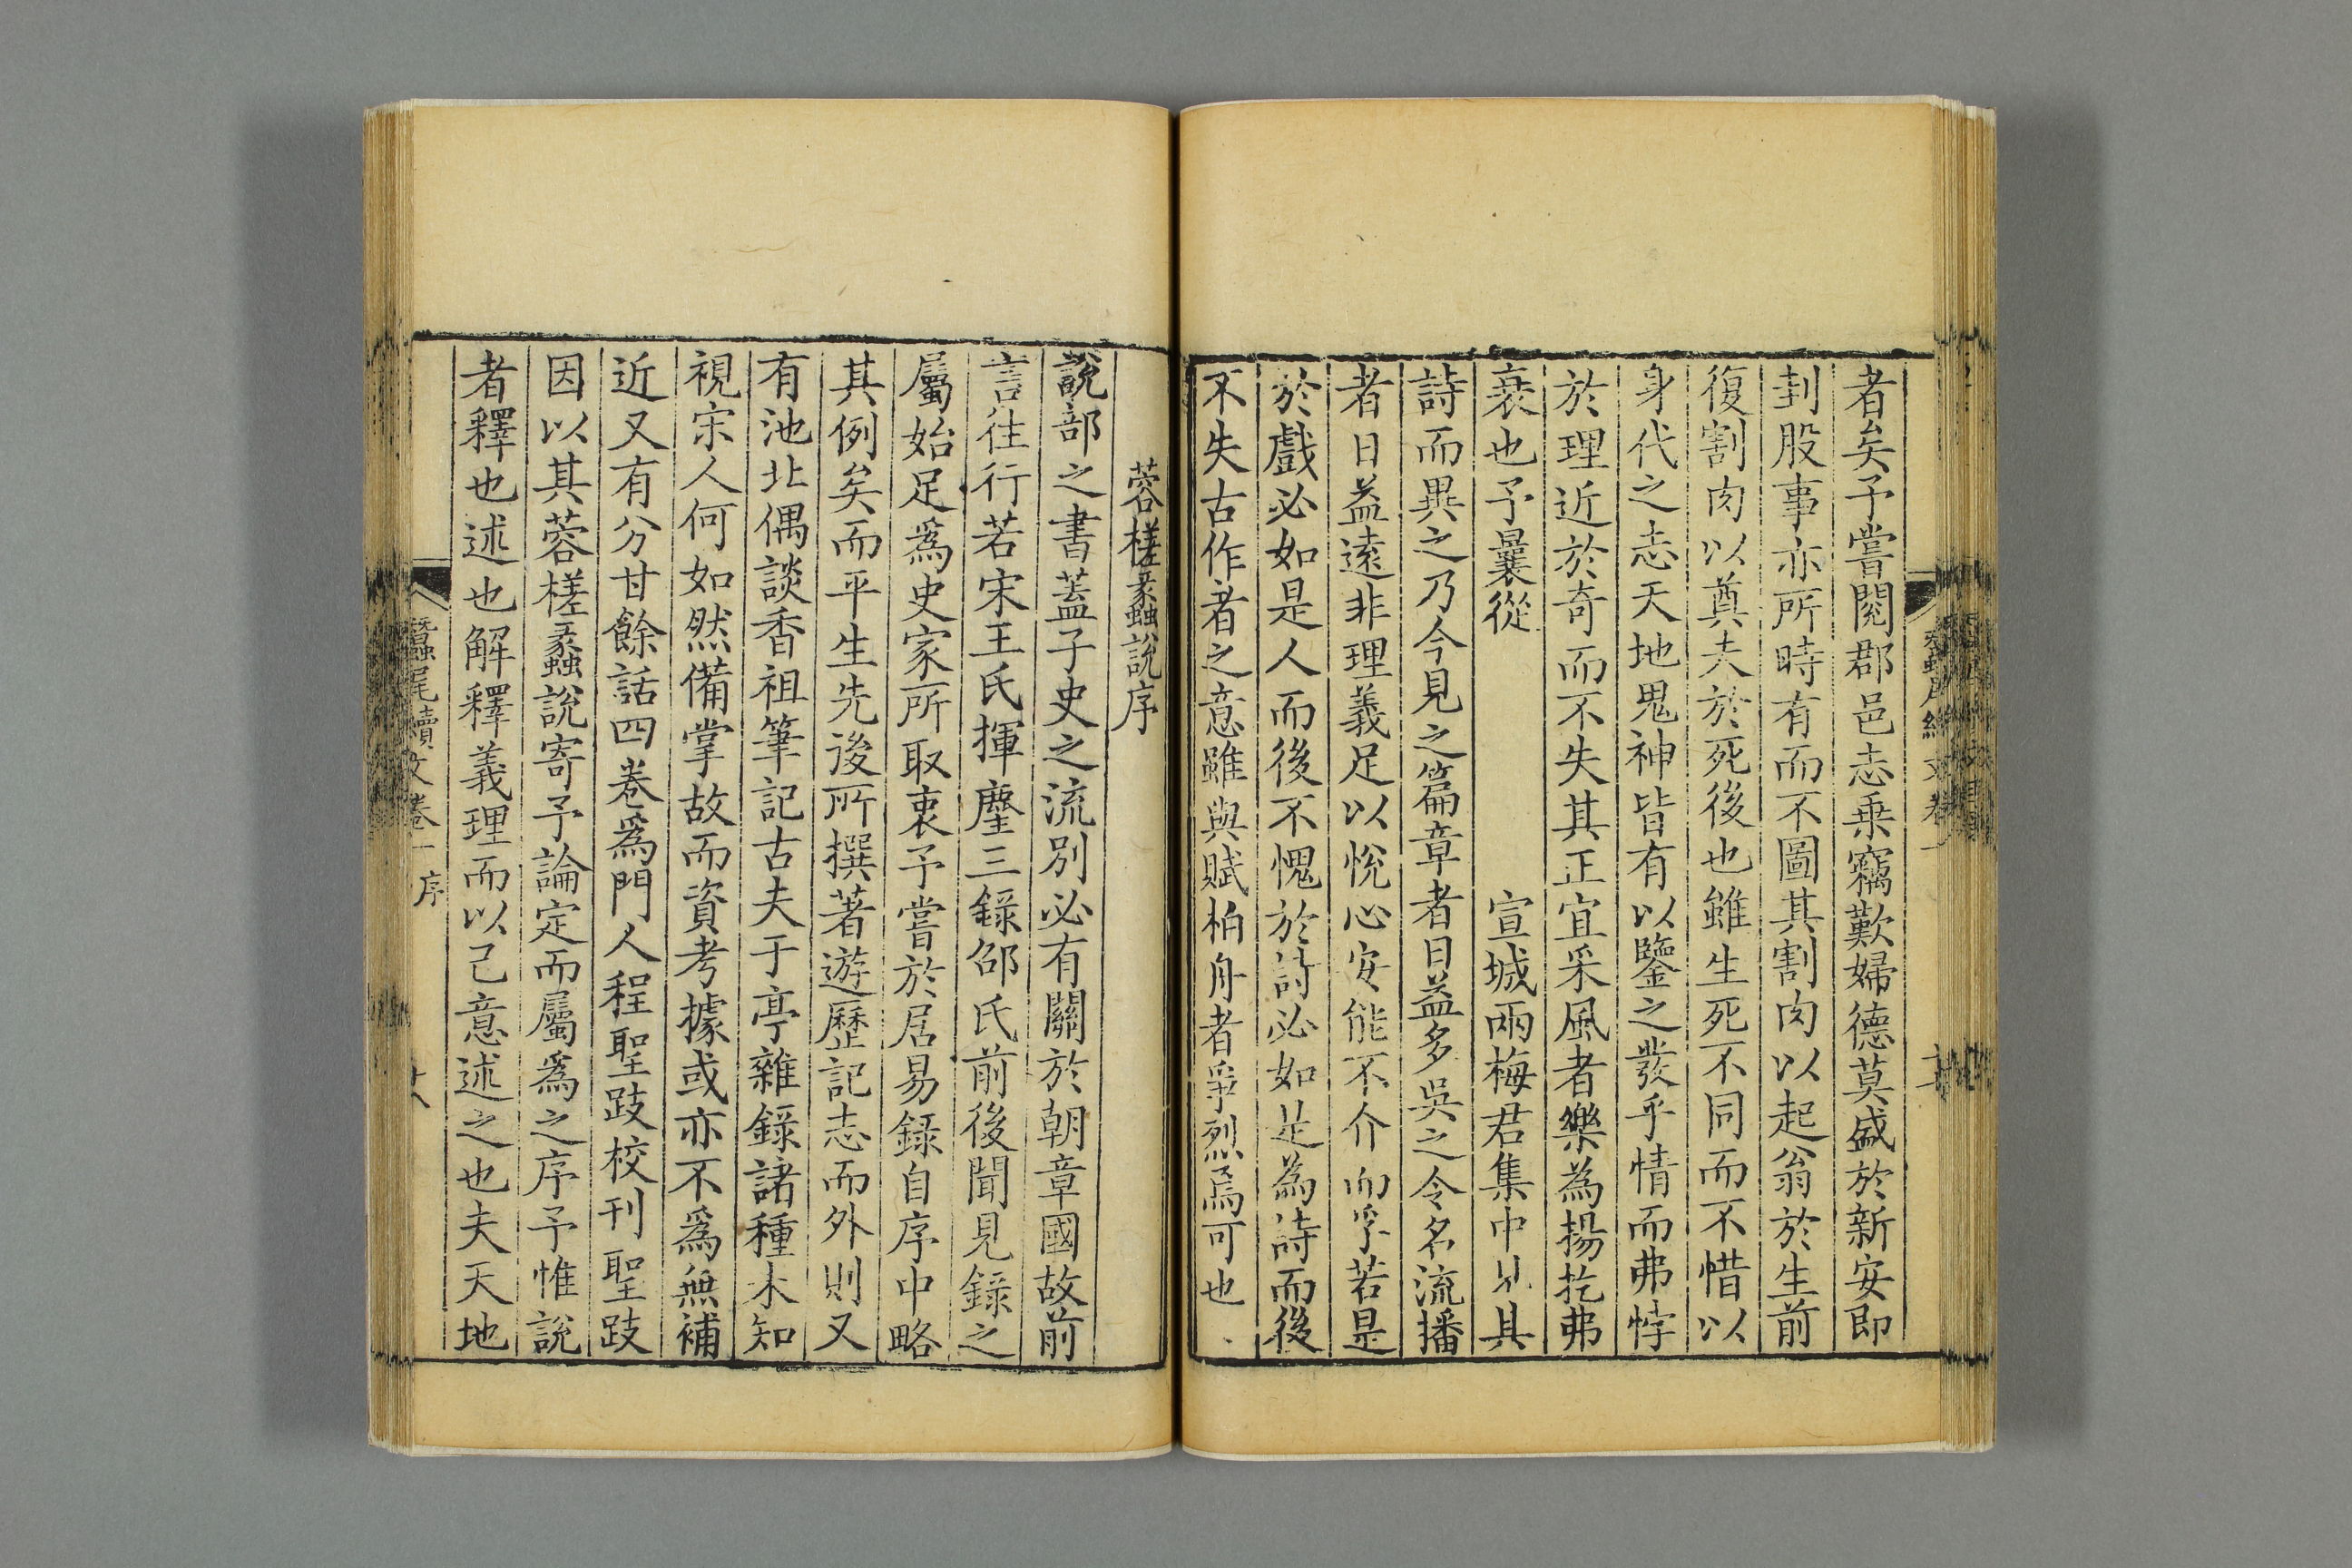 者矣予嘗閱郡邑志乗竊歎婦德莫盛於新安即
刲股事亦所時有而不圖其割肉以起翁於生前
復割肉以奠夫於死後也雖生死不同而不惜以
身代之志天地鬼神皆有以鑒之發乎情而弗悖
於理近於奇而不失其正宜采風者樂為揚扢弗
衰也予曩從 宣城兩梅君集中見其
詩而異之乃今見之篇章者日益多吳之令名流播
者日益遠非理義足以悅心安能不介而孚若是
於戲必如是人而後不愧於詩必如是為詩而後
不失古作者之意雖與賦柏舟者爭烈焉可也
蓉槎蠡說序
說部之書蓋子史之流別必有關於朝章國故前
言往行若宋王氏揮麈三錄邵氏前後聞見錄之
屬始足爲史家所取衷予嘗於居易錄自序中略
其例矣而平生先後所撰著遊歷記志而外則又
有池北偶談香祖筆記古夫于亭雜錄諸種未知
視宋人何如然備掌故而資考據或亦不爲無補
近又有分甘餘話四卷爲門人程聖跂校刊聖跂
因以其蓉槎蠡說寄予論定而屬爲之序予惟說
者釋也述也解釋義理而以己意述之也夫天地
蠶尾續文卷一 序